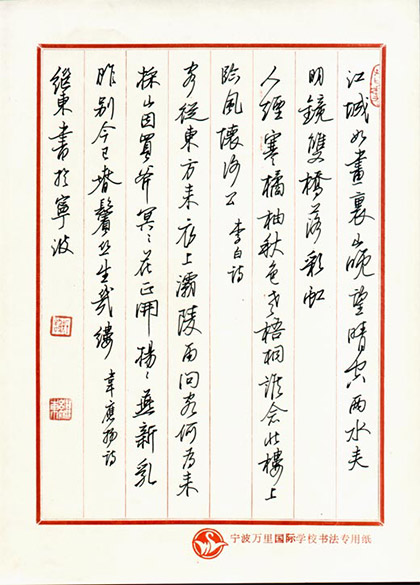 江城如畫裏山晚望晴空兩水夾
明鏡雙橋落彩虹
人煙寒橘柚秋色老梧桐誰念北樓上
臨風懷谢公 李白诗
客從東方来衣上灞陵雨問客何為来
採山因買斧冥〻花正開揚〻燕新乳
昨别今已春鬢丝生幾縷 韋應物诗
继東書於寧波
宁波万里国际学校书法专用纸